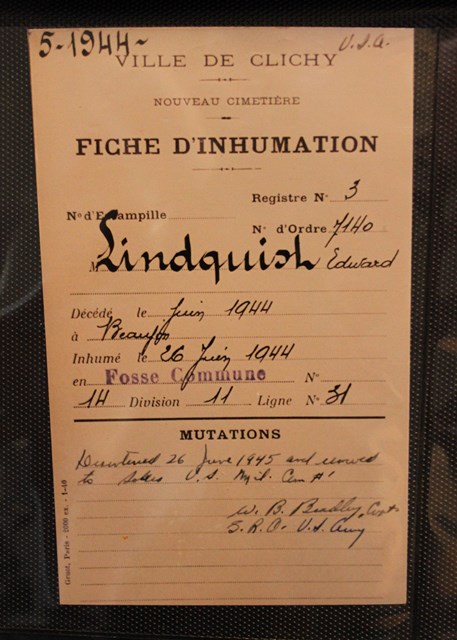 5-1944-
U.S.A.
VILLE DE CLICHY
NOUVEAU CIMETIÈRE
FICHE D'INHUMATION
Registre N° 3
N° d'Estampille
N° d'Ordre 7140
M Lindquist Edward
Décédé le Juin 1944
à Beaujon
Inhumé le 26 Juin 1944
en Fosse Commune N°
14 Division 11 Ligne N° 31
MUTATIONS
Disinterred 26 June 1945 and removed
to U.S. Mil. Cem #1
W. B. Capt.
U.S. Army